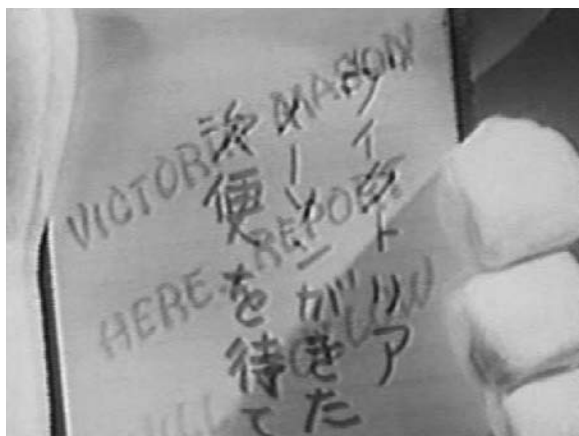 VICTORIA MASON
HERE. REPORT
WILL
ヴィクトリア
メーソンがきた
次便を待て